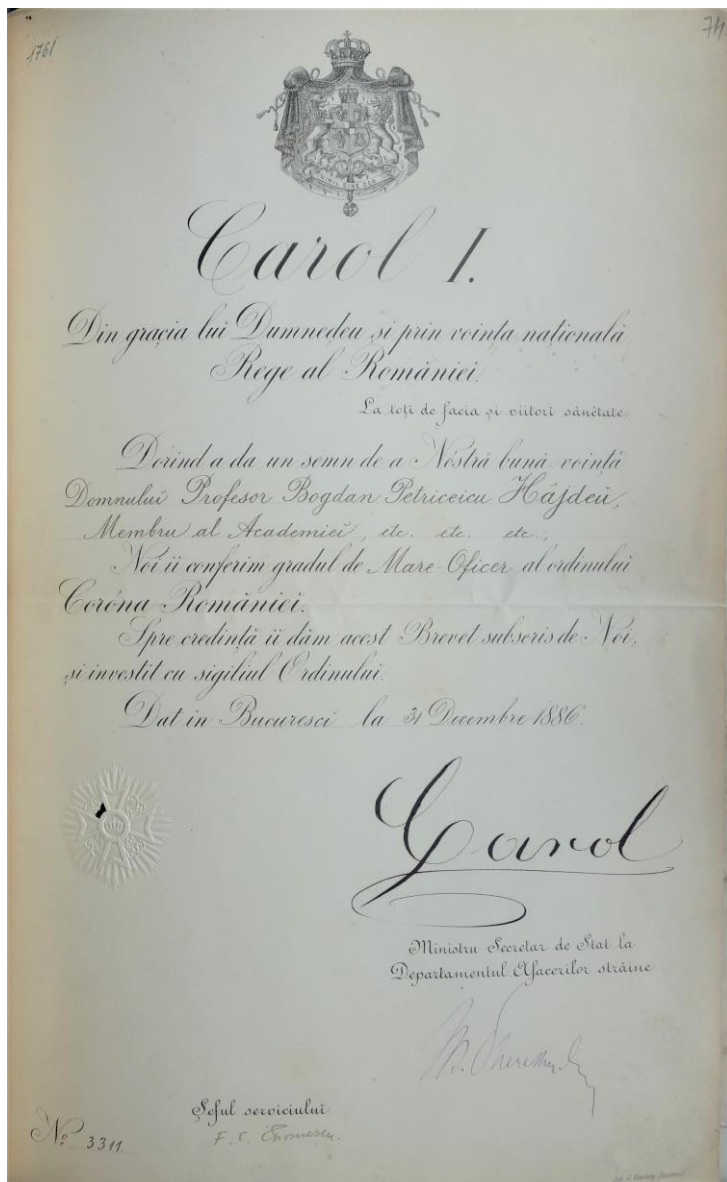 1761
74
NIHIL SINE DEO
Carol I.
Din grația lui Dumnedeu și prin voința națională
Rege al României.
La toți de facia și viitori sănĕtate.
Dorind a da un semn de a Nóstră bună voință
Domnului Profesor Bogdan Petriceicu Hâjdeŭ,
Membru al Academieĭ, etc. etc. etc.,
Noi ii conferim gradul de Mare-Oficer al ordinului
Coróna României.
Spre credință ii dăm acest Brevet subscris de Noi,
și investit cu sigiliul Ordinului.
Dat in Bucuresci la 31 Decembre 1886.
Carol
Ministru Secretar de Stat la
Departamentul Afacerilor străine
Șeful serviciului
F. C.
No 3311